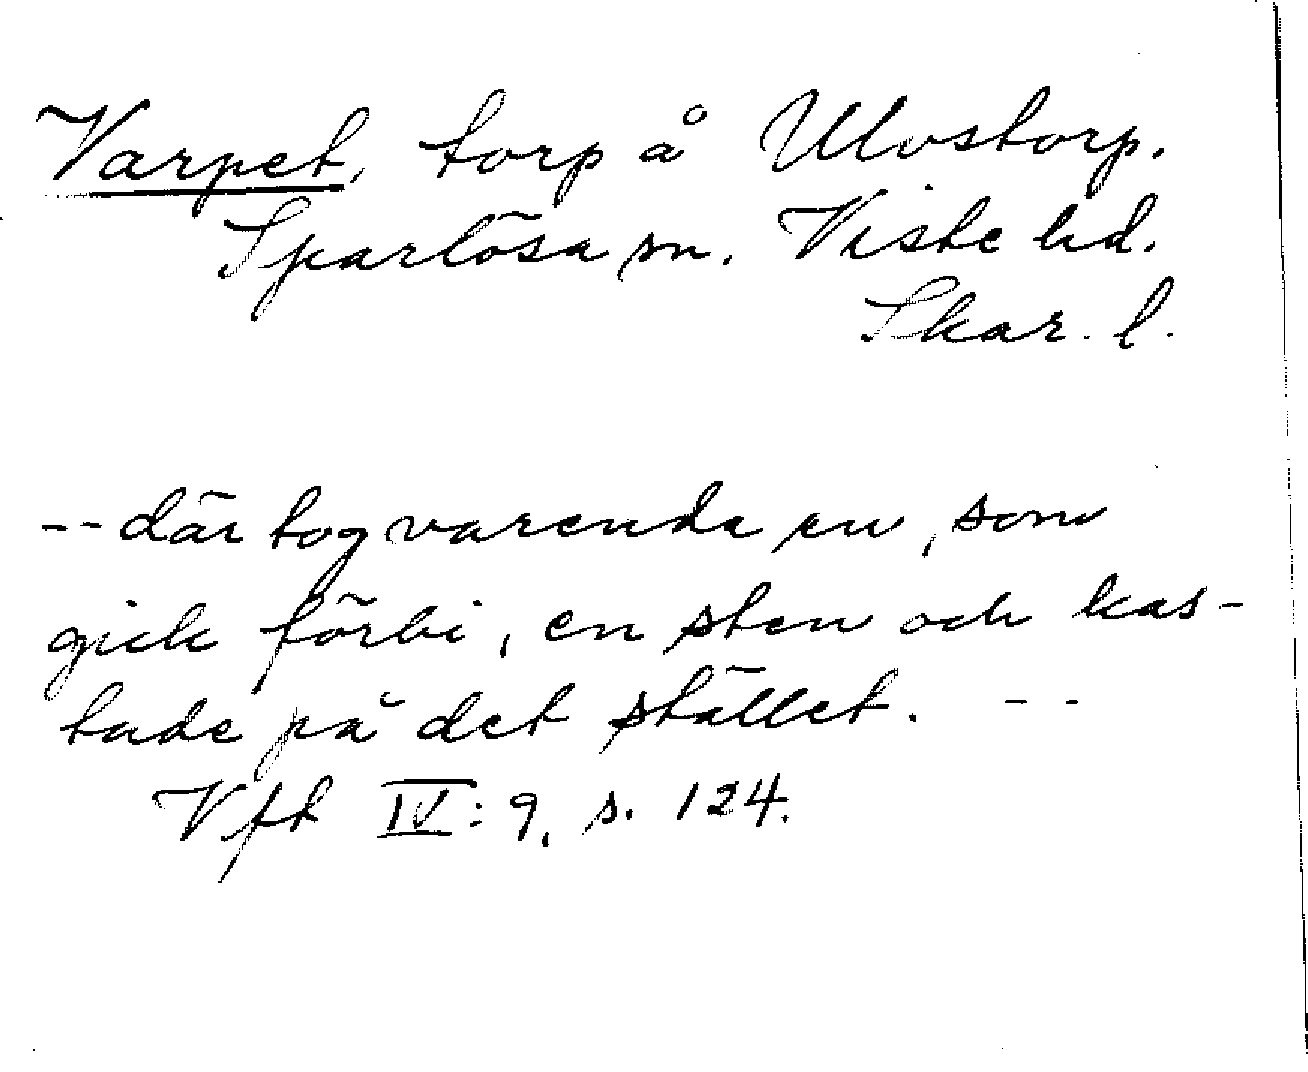 Varpet, torp å Ulvstorp.
Sparlösa sn. Viste hd.
Skar. l.
-- där tog varenda en, som
gick förbi, en sten och kas-
tade på det stället. --
Vft IV: 9, s. 124.